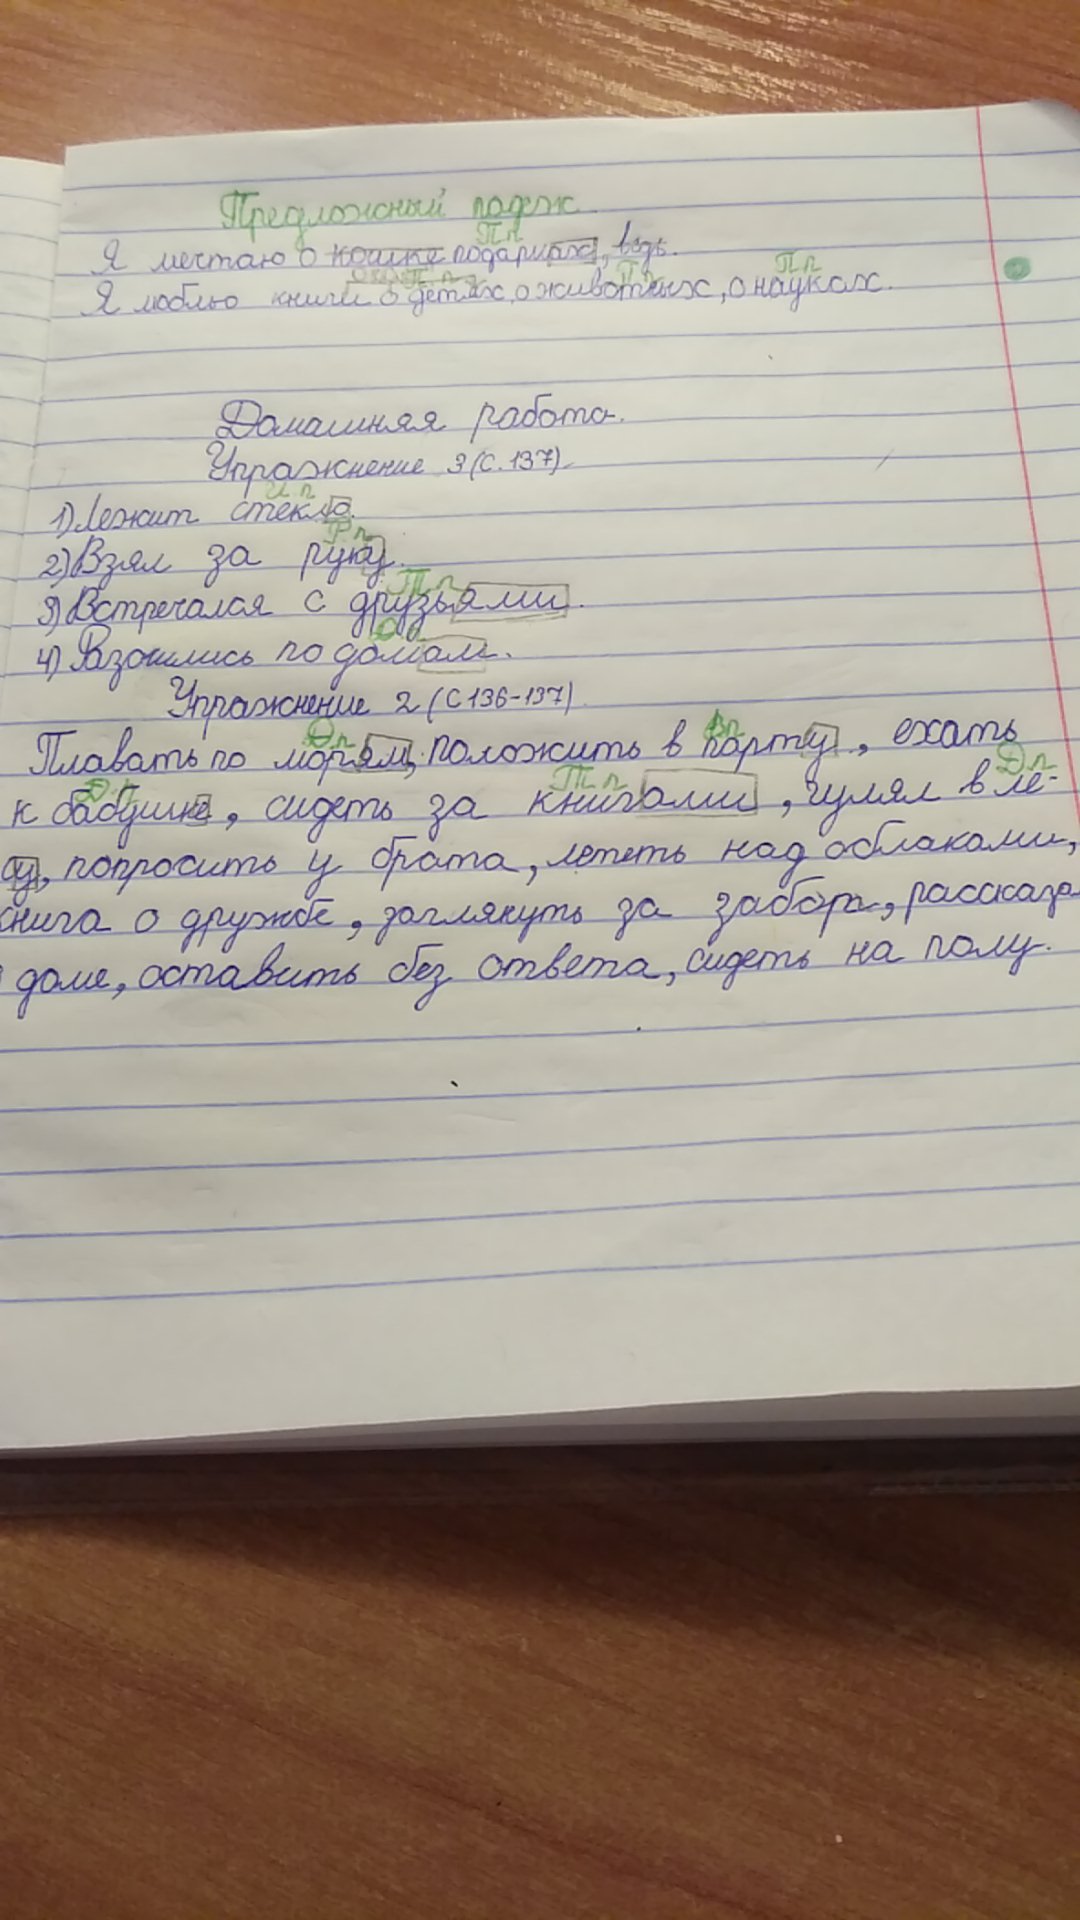 Предложный падеж
Пп
Я мечтаю о кошке подарках, ведь.
Пп Пп Пп
Я люблю книги о детях, о животных, о науках.
Домашняя работа.
Упражнение 3 (С. 137)
И п
1) Лежит стекло.
Р п
2) Взял за руку.
Т п
3) Встречался с друзьями.
4) Разошлись по домам.
Упражнение 2 (С 136-137)
Д п Вп
Плавать по морям, положить в парту, ехать
Д п Т п Д п
к бабушке, сидеть за книгами, гулял в ле-
су, попросить у брата, лететь над облаками,
книга о дружбе, заглянуть за забор, рассказ
доме, оставить без ответа, сидеть на полу.